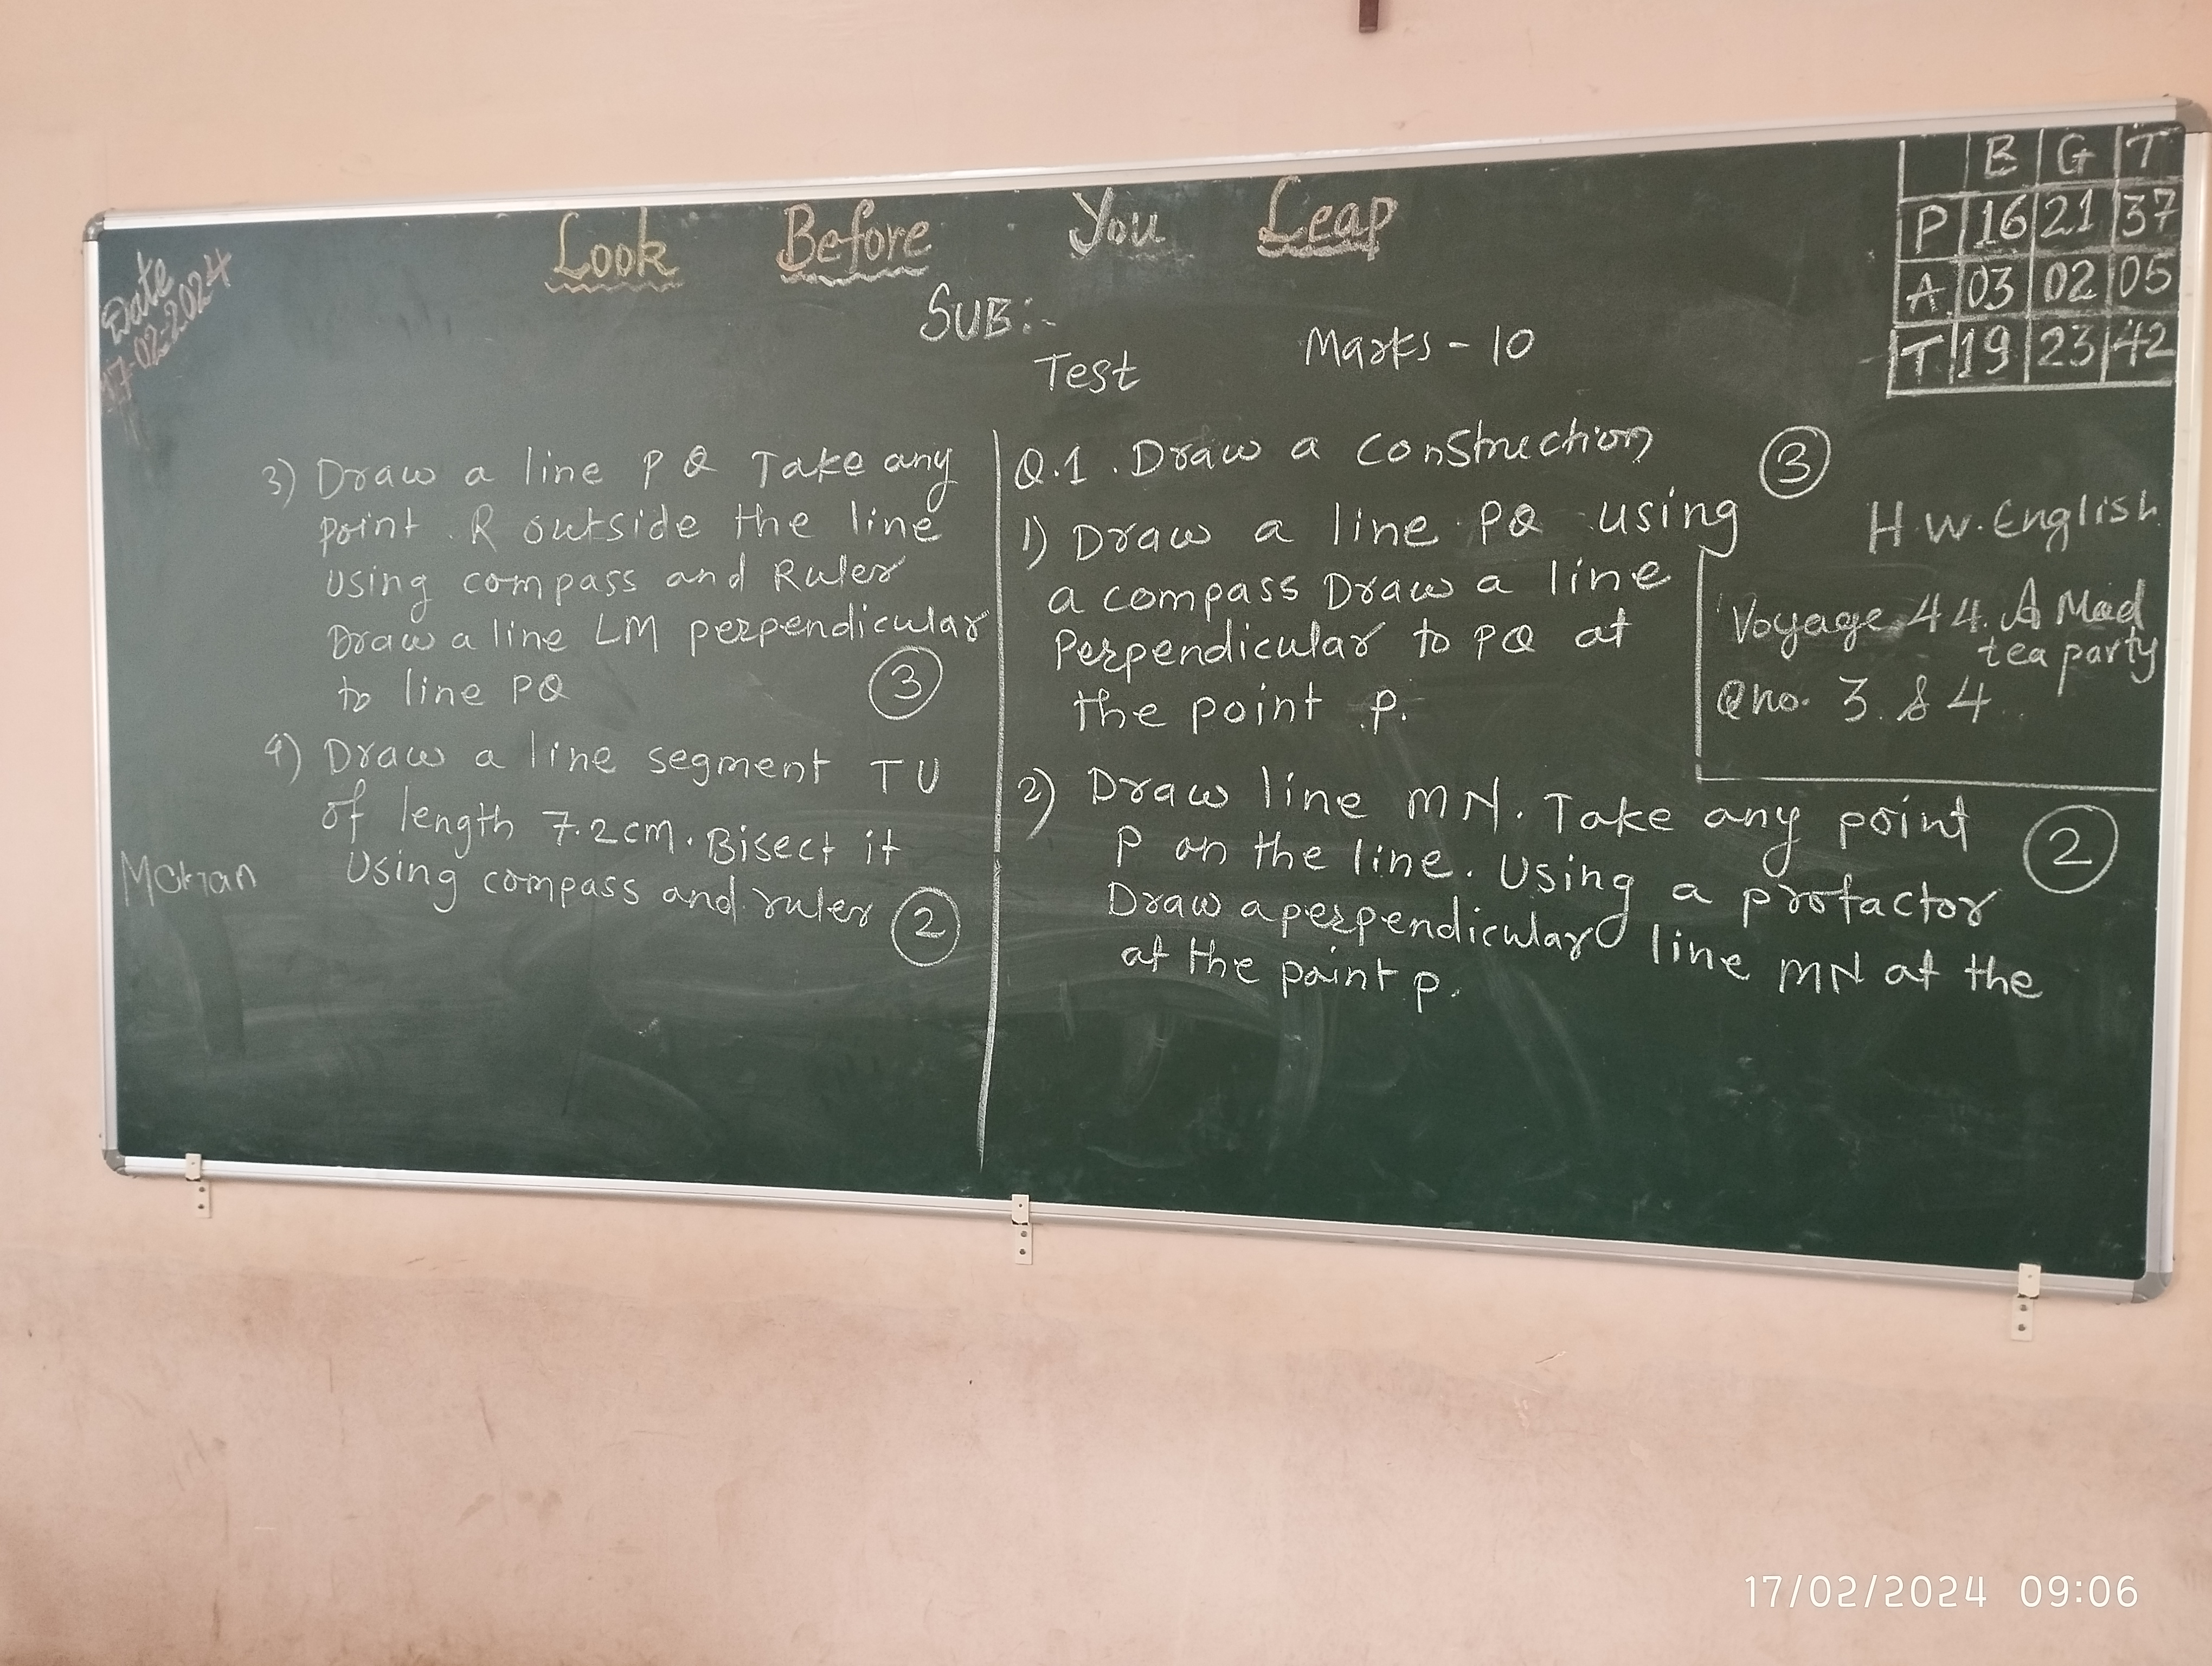 Look Before You Leap
Date
17-02-2024
B G T
P 16 21 37
A 03 02 05
T 19 23 42
SUB:-
Test Marks - 10
Q.1. Draw a construction
3
1) Draw a line PQ using
a compass Draw a line
Perpendicular to PQ at
the point P.
2) Draw line MN. Take any point
P on the line. Using a protactor
Draw a perpendicular line MN at the
at the point P.
2
3) Draw a line PQ Take any
point R outside the line
using compass and Ruler
Draw a line LM perpendicular
to line PQ
3
4) Draw a line segment TU
of length 7.2cm. Bisect it
Using compass and ruler
2
H.W. English
Voyage 44. A Mad
tea party
Qno. 3. & 4
17/02/2024 09:06